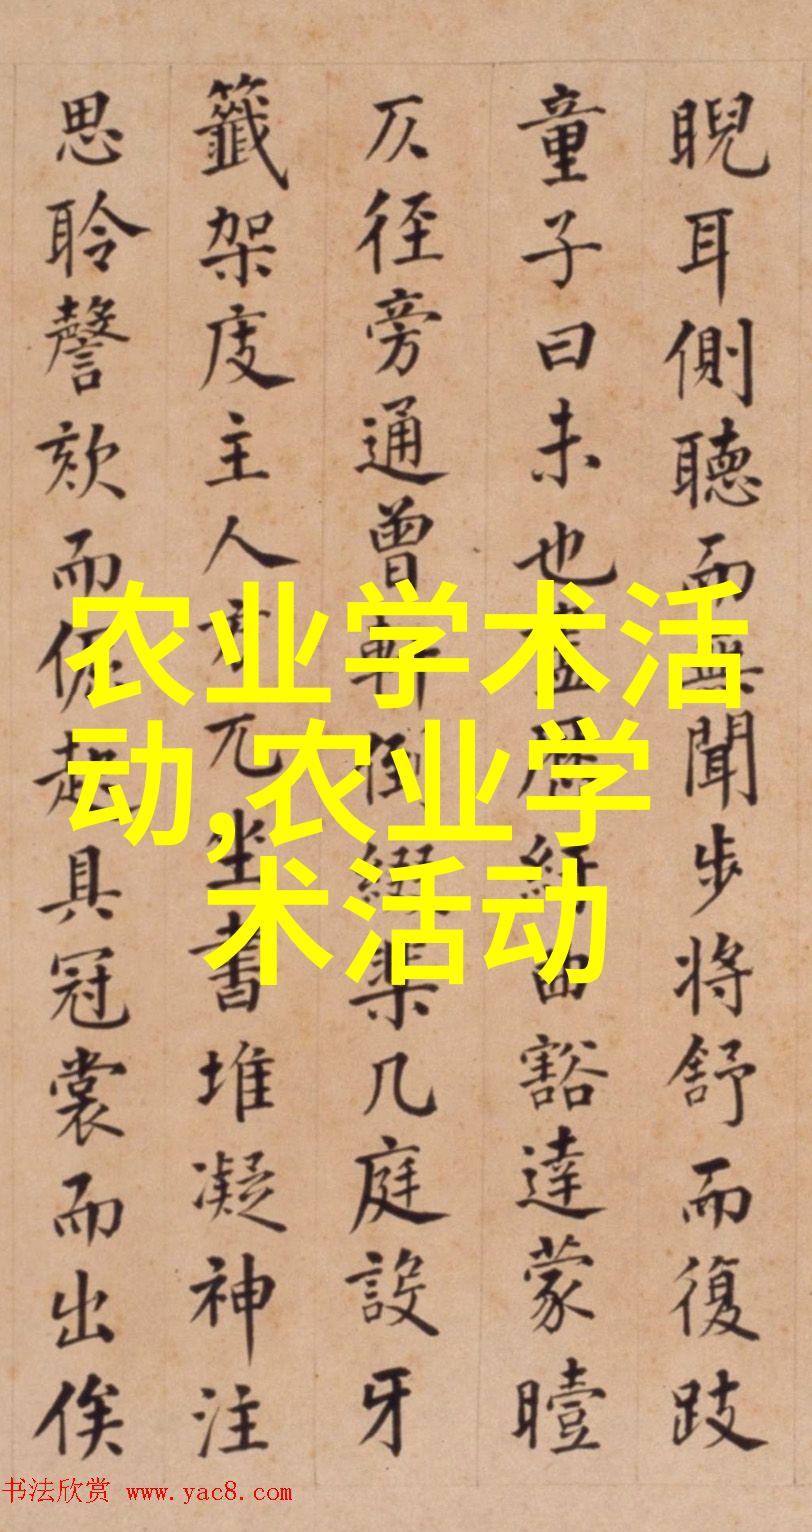 睨耳側聽而無聞步將舒而復跂
童子曰未也盍曆紆曲豁達蒙曀
仄徑旁通曾軒倒綴渠几庭設牙
籤架庋主人方兀坐書堆凝神注
思聆謦欬而倔起具冠裳而出俟
农业学术活
动,农业学
术活动
书法欣赏 www.yac8.com